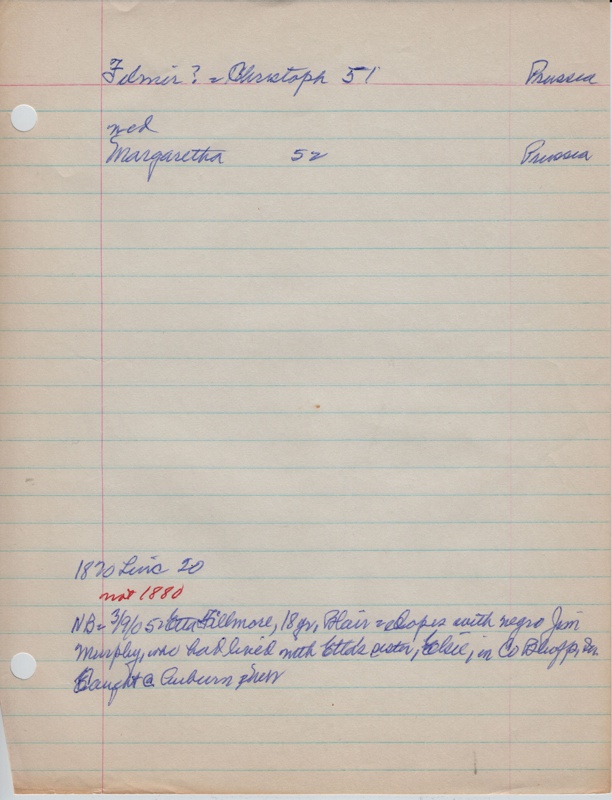 Filmir? = Christoph 51 Prussia
wed
Margaretha 52 Prussia
1870 Linc 20
not 1880
NB = 3/9/05 = Etta Fillmore, 18 yr, Blair = elopes with negro Jim
Murphy, who had lived with Etta's sister, Elsie, in Co Bluffs, Ia.
Caught @ Auburn